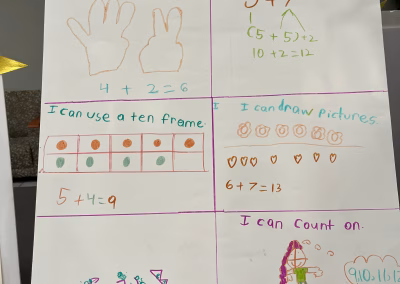 4 + 2 = 6
(5 + 5) + 2
10 + 2 = 12
I can use a ten frame.
5 + 4 = 9
I can draw pictures
6 + 7 = 13
I can count on.